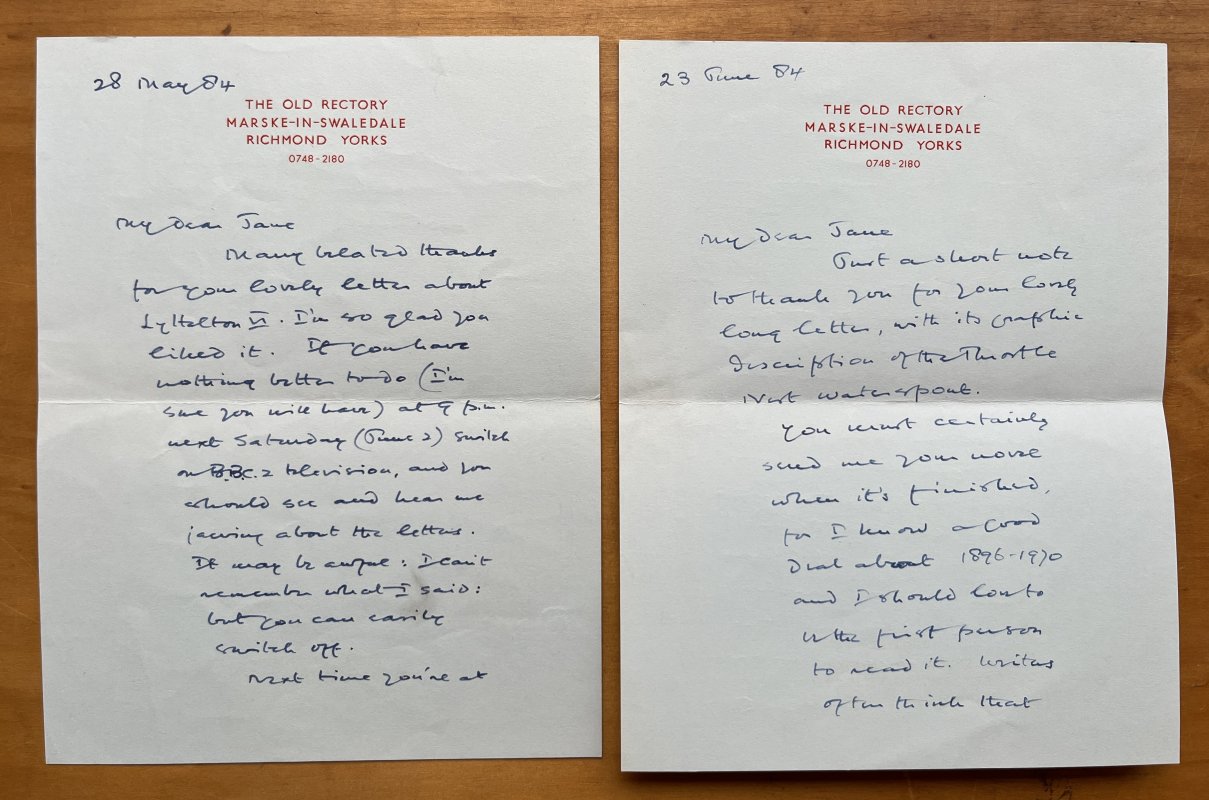 28 May 84
THE OLD RECTORY
MARSKE-IN-SWALEDALE
RICHMOND YORKS
0748-2180
My Dear Jane
Many belated thanks
for your lovely letter about
Lyttelton VI. I'm so glad you
liked it. If you have
nothing better to do (I'm
sure you will have) at 9 p.m.
next Saturday (June 2) switch
on B.B.C.2 television, and you
should see and hear me
jawing about the letters.
It may be awful: I can't
remember what I said:
but you can easily
switch off.
Next time you're at
23 June 84
THE OLD RECTORY
MARSKE-IN-SWALEDALE
RICHMOND YORKS
0748-2180
My Dear Jane
Just a short note
to thank you for your lovely
long letter, with its graphic
description of the Throstle
Nest waterspout.
You must certainly
send me your novel
when it's finished,
for I know a good
deal about 1896-1970
and I should love to
be the first person
to read it. Writers
often think that